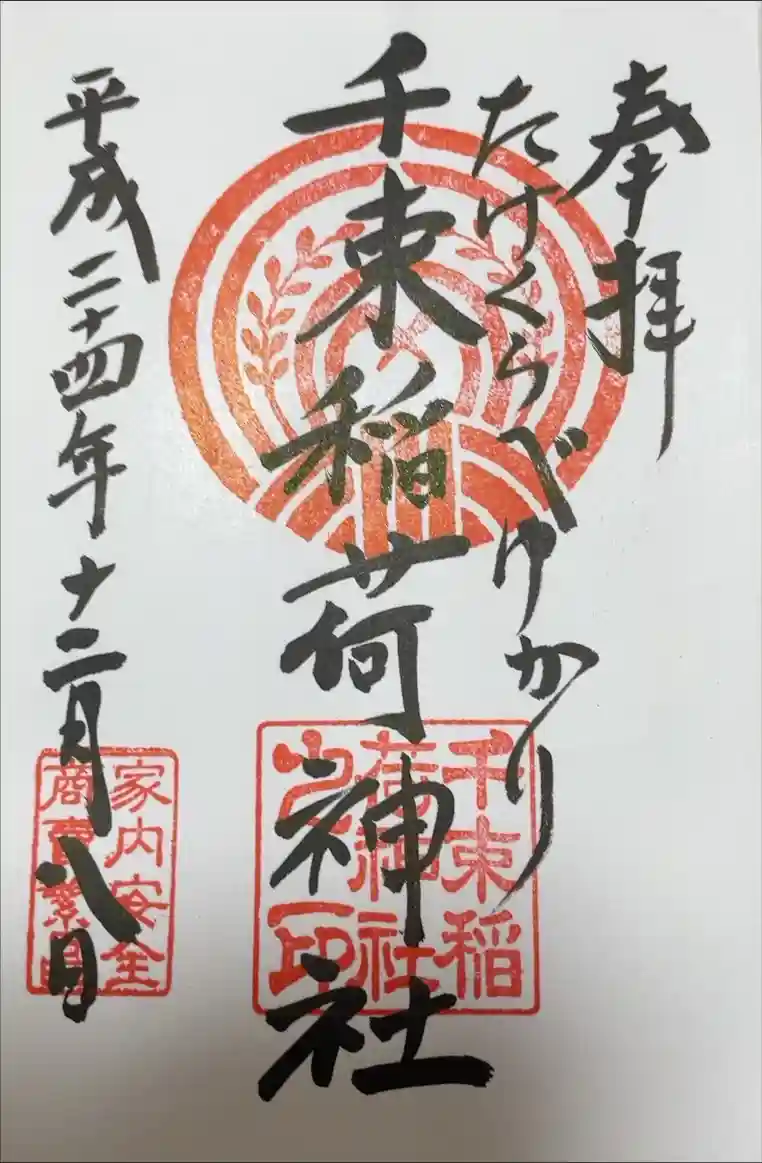 奉拝
たけくらべゆかり
千束稲荷神社
千束稲
荷神社
之印
平成二十四年十二月八日
家内安全
商賣繁昌